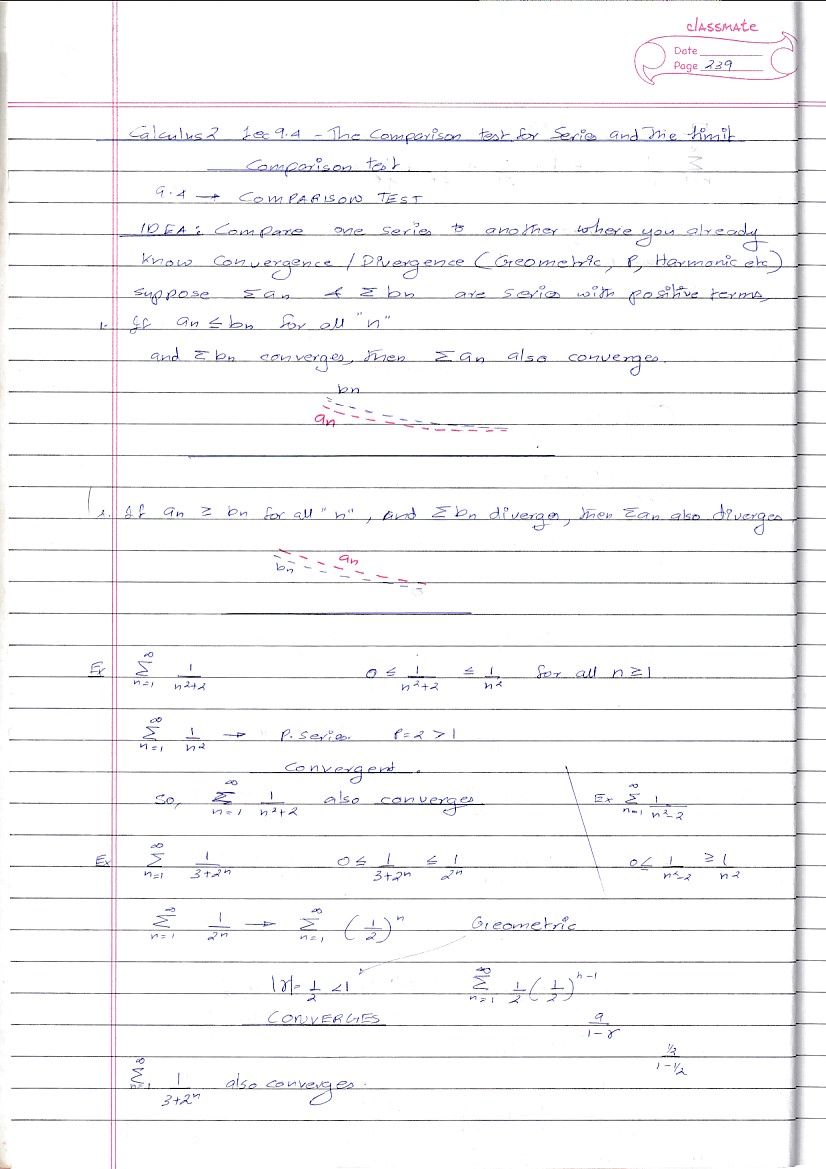 classmate
Date
Page 239
Calculus 2 Lec 9.4 - The Comparison test for Series and The Limit
Comparison test.
9.4 → COMPARISON TEST
IDEA: Compare one series to another where you already
know Convergence / Divergence (Geometric, P, Harmonic etc)
suppose Σan & Σbn are series with positive terms,
1. If an ≤ bn for all "n"
and Σbn converges, then Σan also converges.
bn
an
2. If an ≥ bn for all "n", and Σbn diverges, then Σan also diverges
an
bn
Ex ∞Σn=1 1/(n²+2) 0 ≤ 1/(n²+2) ≤ 1/n² for all n ≥ 1
∞Σn=1 1/n² → P. Series. P=2 > 1
Convergent.
So, ∞Σn=1 1/(n²+2) also converges Ex ∞Σn=1 1/(n²-2)
Ex ∞Σn=1 1/(3+2ⁿ) 0 ≤ 1/(3+2ⁿ) ≤ 1/2ⁿ 0 ≤ 1/(n²-2) ≥ 1/n²
∞Σn=1 1/2ⁿ → ∞Σn=1 (1/2)ⁿ Geometric
|r| = 1/2 < 1 ∞Σn=1 1/2 (1/2)ⁿ⁻¹
CONVERGES a/(1-r)
½/(1-½)
∞Σn=1 1/(3+2ⁿ) also converges.